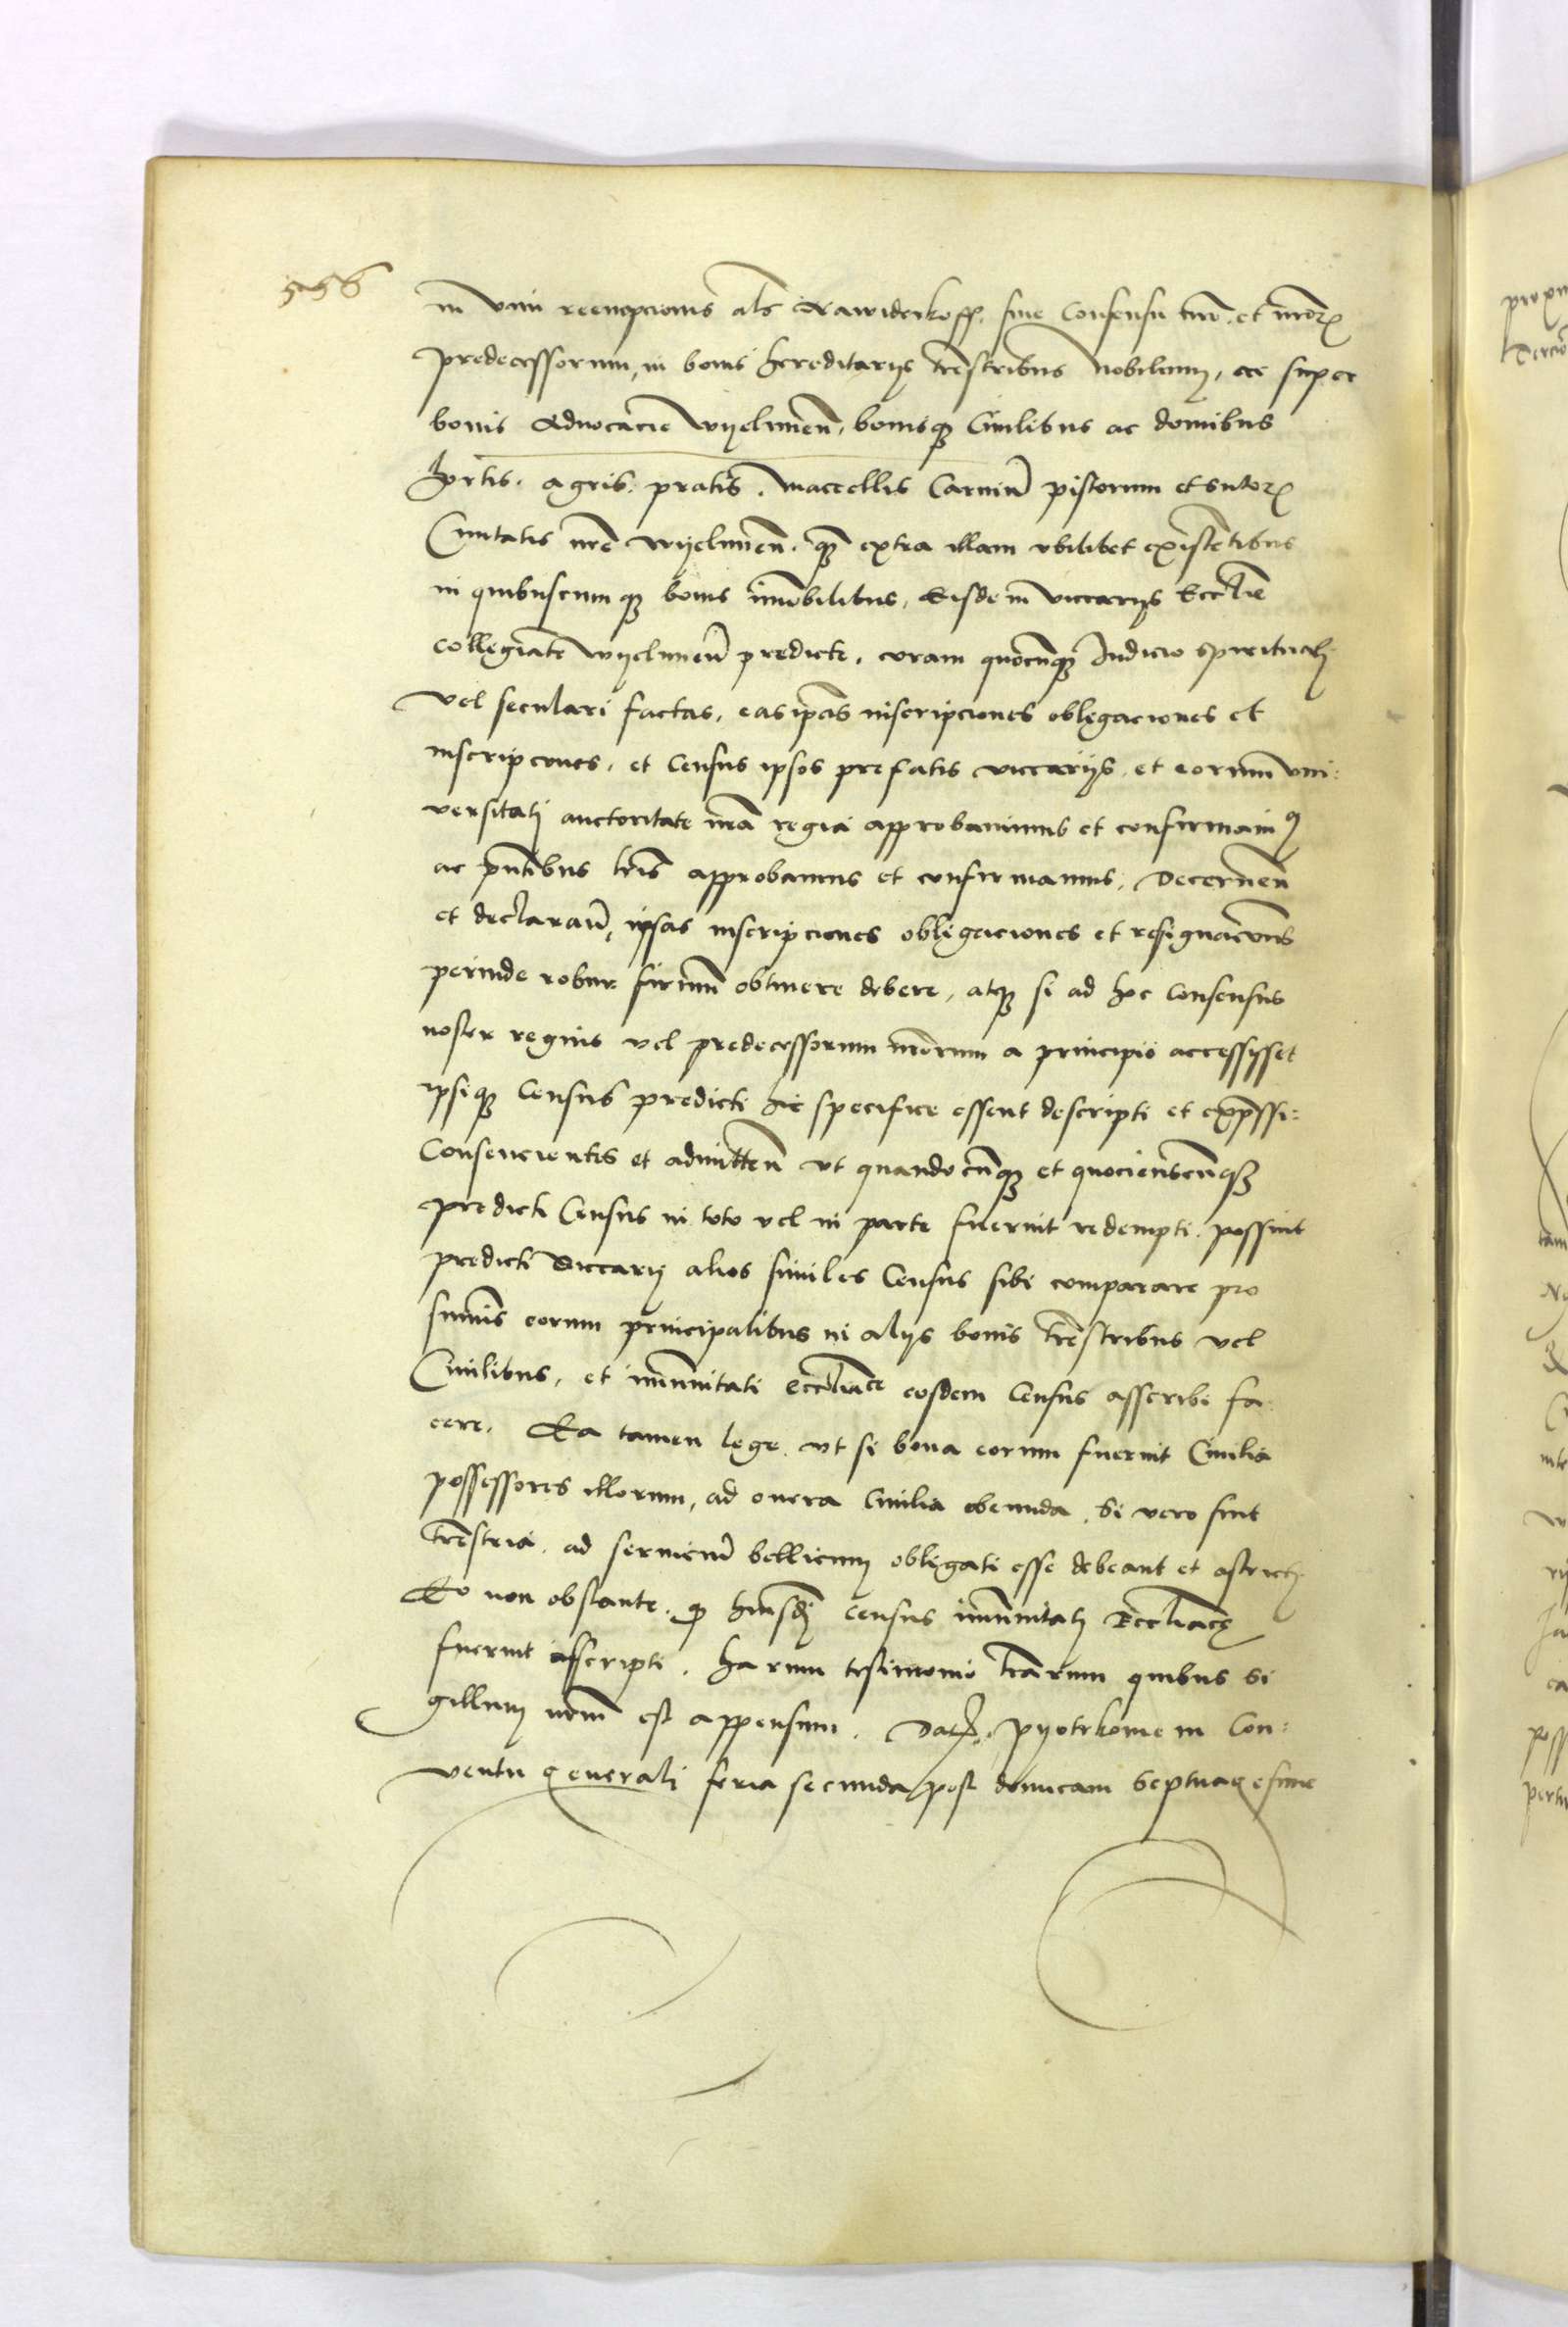 556
in vim reempcionis als wiederkoff. sine consensu nro. et nrorum
predecessorum, in bonis hereditariis trestribus nobilium, ac super
bonis Advocacie wyelunen, bonisque Civilibus ac domibus
hortis. agris. pratis. maccellis Carnium pistorum et sutorum
Civitatis nre wyelunen. quam extra illam vbilibet existentibus
in quibuscumque bonis imobilibus, Eisdem viccariis Eccclie
collegiate wyelunen predicte, coram quocunque Iudicio spirituali
vel seculari factas, eas ipas inscripciones obligaciones et
inscripciones, et census ipsos prefatis viccariis. et eorum vni:
versitati auctoritate nra regia approbavimus et confirmavimus
ac pntibus lris approbamus et confirmamus, Decernen
et declaran, ipsas inscripciones obligaciones et resignaciones
perinde robur firmum obtinere debere, atque si ad hoc consensus
noster regius vel predecessorum nrorum a principio accessysset
ipsique Census predicti hic specifice essent descripti et expressi:
Consencientes et admitten vt quandocunque et quocienscunque
predicti Census in toto vel in parte fuerint redempti. possint
predicti Viccarii alios similes Census sibi comparare pro
sumis eorum principalibus in aliis bonis trestribus vel
Civilibus, et imunitati eccliace eosdem Census asscribi fa
cere. Ea tamen lege. vt si bona eorum fuerint Civilia
possessores illorum, ad onera Civilia obeunda, Si vero sint
trestria. ad servicium bellicum obligati esse debeant et astricti
Eo non obstante. quod huiusmodi census imunitati Eccliace
fuerint asscripti. harum testimonio lrarum quibus si
gillum nrum est appensum. Dat. pyotrkovie in Con:
ventu generali feria secunda post domicam Septuagesime